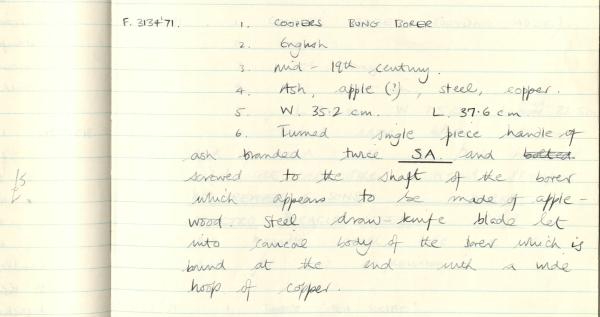 F. 3134'71. 1. COOPERS BUNG BORER
2. English
3. mid-19th century.
4. Ash, apple (?), steel, copper.
5 W. 35.2 cm. L. 37.6 cm
6. Turned single piece handle of
ash branded twice S.A. and bolted
screwed to the shaft of the borer
which appears to be made of apple-
wood. Steel draw-knife blade let
into conical body of the borer which is
bound at the end with a wide
hoop of copper.